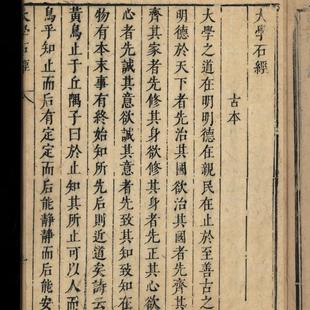 大學石經
古本
大學之道在明明德在親民在止於至善古之
明德於天下者先治其國欲治其國者先齊其
齊其家者先修其身欲修其身者先正其心欲
心者先誠其意欲誠其意者先致其知致知在
物有本末事有終始知所先後則近道矣詩云
黃鳥止于丘隅子曰於止知其所止可以人而
鳥乎知止而后有定定而后能靜靜而后能安
大學石經